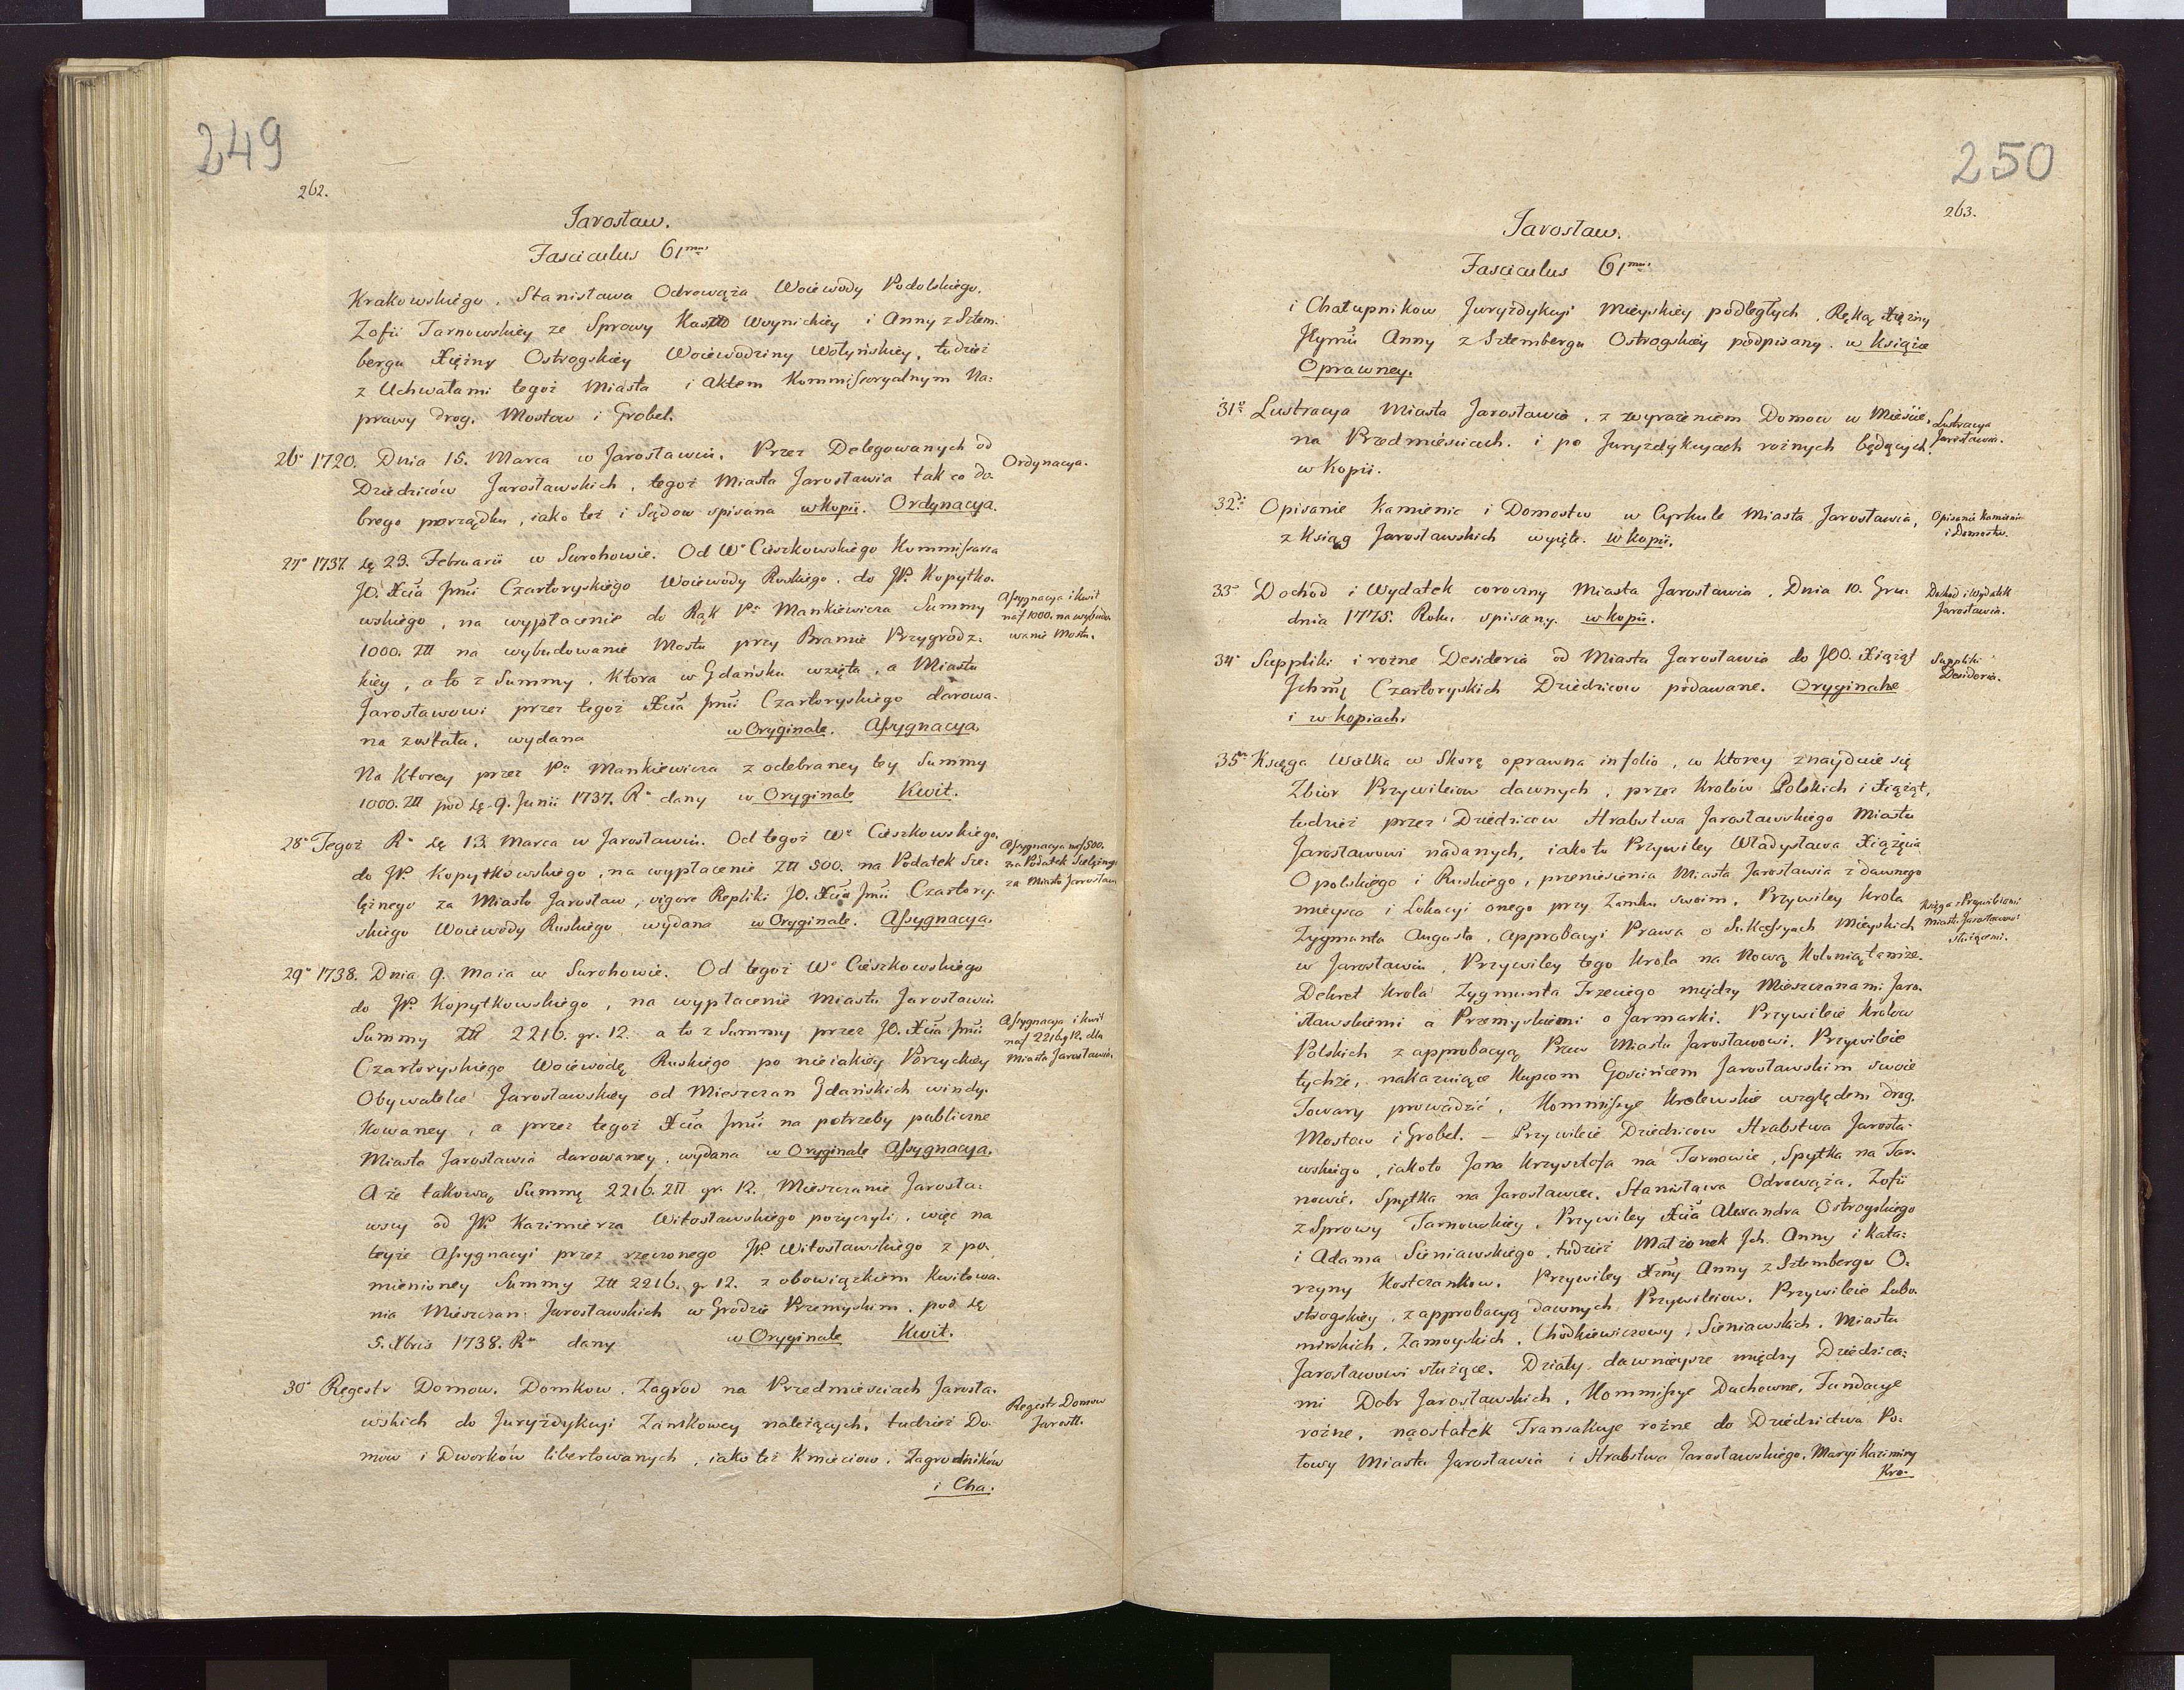 249
262.
Jarosław.
Fasciculus 61mus
Krakowskiego. Stanisława Odrowąża Woiewody Podolskiego.
Zofii Tarnowskiey ze Sprowy Woynickiey i Anny z Sztem-
berga Xiężny Ostrogskiey Woiewodziny Wołyńskiey, tudzież
z Uchwałami tegoż Miasta i Aktem Kommissoryalnym Na-
prawy Drog, Mostow i Grobel.
26° 1720. Dnia 15. Marca w Jarosławiu. Przez Delegowanych od
Dziedziców Jarosławskich, tegoż Miasta Jarosławia tak co do
brego porządku, iako też i Sądow spisana w kopii. Ordynacya.
Ordynacya.
27° 1737. Dę 23. Februarii w Surohowie. Od W° Cieszkowskiego Kommissarza
JO. Xcia Jmci Czartoryskiego Woiewody Ruskiego, do JP. Kopytko-
wskiego, na wypłacenie do Rąk Pa Mankiewicza Summy
1000. Zll na wybudowanie Mostu przy Bramie Przygrodz-
kiey, a to z Summy, ktora w Gdańsku wzięta, a Miastu
Jarosławowi przez tegoż Xcia Jmci Czartoryskiego darowa-
na została, wydana w Oryginale. Assygnacya.
Na ktorey przez Pa Mankiewicza z odebraney tey Summy
1000. Zll pod Dę 9. Junii 1737. R° dany w Oryginale Kwit.
Assygnacya i kwit
na f 1000. na wybudo-
wanie Mostu.
28° Tegoż R° Dę 13. Marca w Jarosławiu. Od tegoż W° Cieszkowskiego,
do JP. Kopytkowskiego, na wypłacenie Zll 500. na Podatek Sze-
lężnego za Miasto Jarosław, vigore Repliki JO. Xcia Jmci Czartory-
skiego Woiewody Ruskiego wydana w Oryginale. Assygnacya.
Assygnacya na f 500.
na Podatek Szelężny
za Miasto Jarosław
29° 1738. Dnia 9. Maia w Surohowie. Od tegoż W° Cieszkowskiego
do JP. Kopytkowskiego, na wypłacenie Miastu Jarosławiu
Summy Zll 2216. gr. 12. a to z Summy przez JO. Xcia Jmci
Czartoryskiego Woiewodę Ruskiego po nieiakiey Porzyckiey
Obywatelce Jarosławskiey od Mieszczan Gdańskich windy-
kowaney, a przez tegoż Xcia Jmci na potrzeby publiczne
Miasta Jarosławia darowaney, wydana w Oryginale Assygnacya.
A że takową Summę 2216. Zll gr. 12. Mieszczanie Jarosła-
wscy od JP. Kazimierza Witosławskiego pożyczyli, więc na
teyże Assygnacyi przez rzeczonego JP. Witosławskiego z po-
mienioney Summy Zll 2216. gr 12. z obowiązkiem kwitowa-
nia Mieszczan Jarosławskich w Grodzie Przemyskim, pod Dę
5. Xbris 1738. R° dany w Oryginale Kwit.
Assygnacya i kwit
na f 2216 g 12. dla
Miasta Jarosławia.
30° Regestr Domow, Domkow, Zagrod na Przedmieściach Jarosła-
wskich do Juryzdykcyi Zamkowey należących, tudzież Do-
mow i Dworków libertowanych, iako też Kmieciow, Zagrodników
i Cha.
Regestr Domow
Jarosł.
250
263.
Jarosław.
Fasciculus 61mus
i Chałupnikow Juryzdykcyi Mieyskiey podległych, Ręką Xiężny
Jeymci Anny z Sztemberga Ostrogskiey podpisany. w Książce
Oprawney.
31° Lustracya Miasta Jarosławia, z wyrażeniem Domow w Mieście,
na Przedmieściach, i po Juryzdykcyach rożnych będących.
w Kopii.
Lustracya
Jarosławia.
32° Opisanie Kamienic i Domostw w Cyrkule Miasta Jarosławia,
z Ksiąg Jarosławskich wyięte. w kopii.
Opisanie Kamienic
i Domostw.
33° Dochod i Wydatek coroczny Miasta Jarosławia, Dnia 10. Gru-
dnia 1775. Roku spisany. w kopii.
Dochod i Wydatek
Jarosławia.
34° Suppliki i rożne Desideria od Miasta Jarosławia do JOO. Xiążąt
Ichmę Czartoryskich Dziedzicow podawane. Oryginalne
i w kopiach.
Suppliki
Desideria.
35° Księga Wielka w Skorę oprawna in folio, w ktorey znayduie się
Zbior Przywileiow dawnych, przez Krolów Polskich i Xiążąt,
tudzież przez Dziedzicow Hrabstwa Jarosławskiego Miastu
Jarosławowi nadanych, iako to Przywiley Władysława Xiążęcia
Opolskiego i Ruskiego, przeniesienia Miasta Jarosławia z dawnego
mieysca i Lokacyi onego przy Zamku swoim, Przywiley Krola
Zygmunta Augusta, approbacyi Prawa o Sukcessyach Mieyskich
w Jarosławiu, Przywiley tego Krola na Nową Kolonią tamże.
Dekret Krola Zygmunta Trzeciego między Mieszczanami Jaro-
sławskiemi a Przemyskiemi o Jarmarki. Przywileie Krolow
Polskich z approbacyą Praw Miastu Jarosławowi. Przywileie
tychże, nakazuiące Kupcom Gościńcem Jarosławskim swoie
Towary prowadzić, Kommissye Krolewskie względem Drog,
Mostow i Grobel. — Przywileie Dziedzicow Hrabstwa Jarosła-
wskiego, iakoto Jana Krzysztofa na Tarnowie, Spytka na Tar-
nowie, Spytka na Jarosławiu, Stanisława Odrowąża, Zofii
z Sprowy Tarnowskiey, Przywiley Xcia Alexandra Ostrogskiego
i Adama Sieniawskiego, tudzież Małżonek Ich. Anny i Kata-
rzyny Kostczankow. Przywiley Xżny Anny z Sztemberga O-
strogskiey, z approbacyą dawnych Przywileiow. Przywileie Lubo-
mirskich, Zamoyskich, Chodkiewiczowy, Sieniawskich, Miastu
Jarosławowi służące. Działy dawnieysze między Dziedzica-
mi Dobr Jarosławskich, Kommissye Duchowne, Fundacye
rożne, naostatek Transakcye rożne do Dziedzictwa Po-
łowy Miasta Jarosławia i Hrabstwa Jarosławskiego, Maryi Kazimiry
Kro-
Księga z Przywileiami
Miastu Jarosławowi
służącemi.